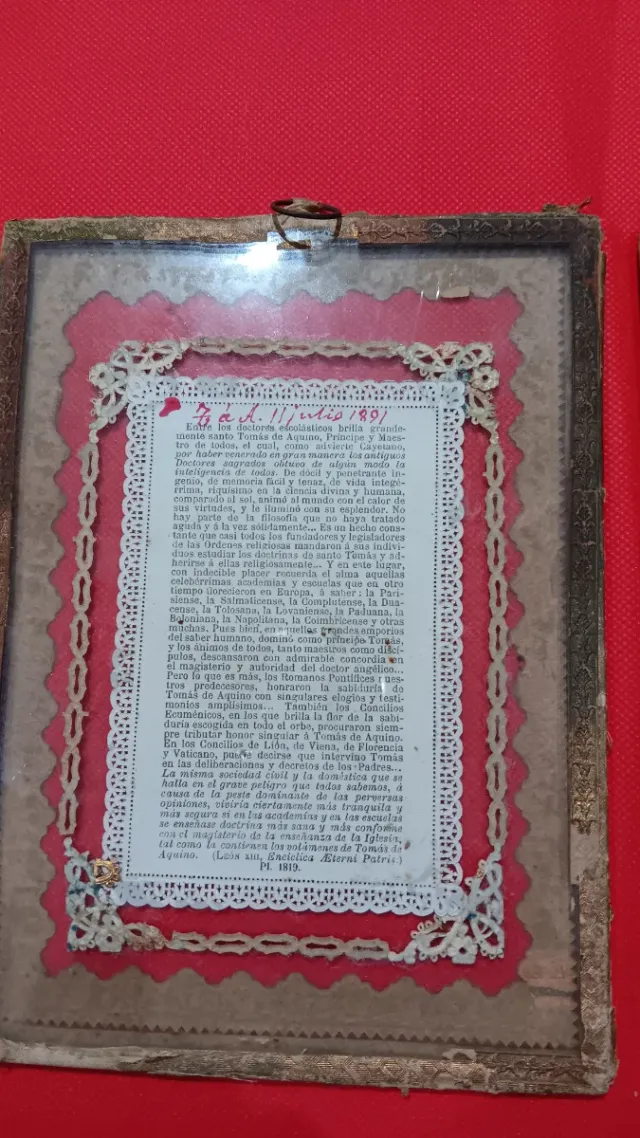 á A. 11 julio 1891
Entre los doctores escolásticos brilla grande-
mente santo Tomás de Aquino, Príncipe y Maes-
tro de todos, el cual, como advierte Cayetano,
por haber venerado en gran manera los antiguos
Doctores sagrados obtuvo de algún modo la
inteligencia de todos. De dócil y penetrante in-
genio, de memoria fácil y tenaz, de vida integé-
rrima, riquísimo en la ciencia divina y humana,
comparado al sol, animó al mundo con el calor de
sus virtudes, y le iluminó con su esplendor. No
hay parte de la filosofía que no haya tratado
aguda y á la vez sólidamente... Es un hecho cons-
tante que casi todos los fundadores y legisladores
de las Ordenes religiosas mandaron á sus indivi-
duos estudiar las doctrinas de santo Tomás y ad-
herirse á ellas religiosamente... Y en este lugar,
con indecible placer recuerda el alma aquellas
celebérrimas academias y escuelas que en otro
tiempo florecieron en Europa, á saber: la Pari-
siense, la Salmaticense, la Complutense, la Dua-
cense, la Tolosana, la Lovaniense, la Paduana, la
Boloniana, la Napolitana, la Coimbricense y otras
muchas. Pues bien, en aquellos grandes emporios
del saber humano, dominó como príncipe Tomás,
y los ánimos de todos, tanto maestros como discí-
pulos, descansaron con admirable concordia en
el magisterio y autoridad del doctor angélico...
Pero lo que es más, los Romanos Pontífices nues-
tros predecesores, honraron la sabiduría de
Tomás de Aquino con singulares elogios y testi-
monios amplísimos... También los Concilios
Ecuménicos, en los que brilla la flor de la sabi-
duría escogida en todo el orbe, procuraron siem-
pre tributar honor singular á Tomás de Aquino.
En los Concilios de Lión, de Viena, de Florencia
y Vaticano, puede decirse que intervino Tomás
en las deliberaciones y decretos de los Padres...
La misma sociedad civil y la doméstica que se
halla en el grave peligro que todos sabemos, á
causa de la peste dominante de las perversas
opiniones, viviría ciertamente más tranquila y
más segura si en las academias y en las escuelas
se enseñase doctrina más sana y más conforme
con el magisterio de la enseñanza de la Iglesia,
tal como la contienen los volúmenes de Tomás de
Aquino. (León XIII, Encíclica Æterni Patris.)
Pl. 1819.